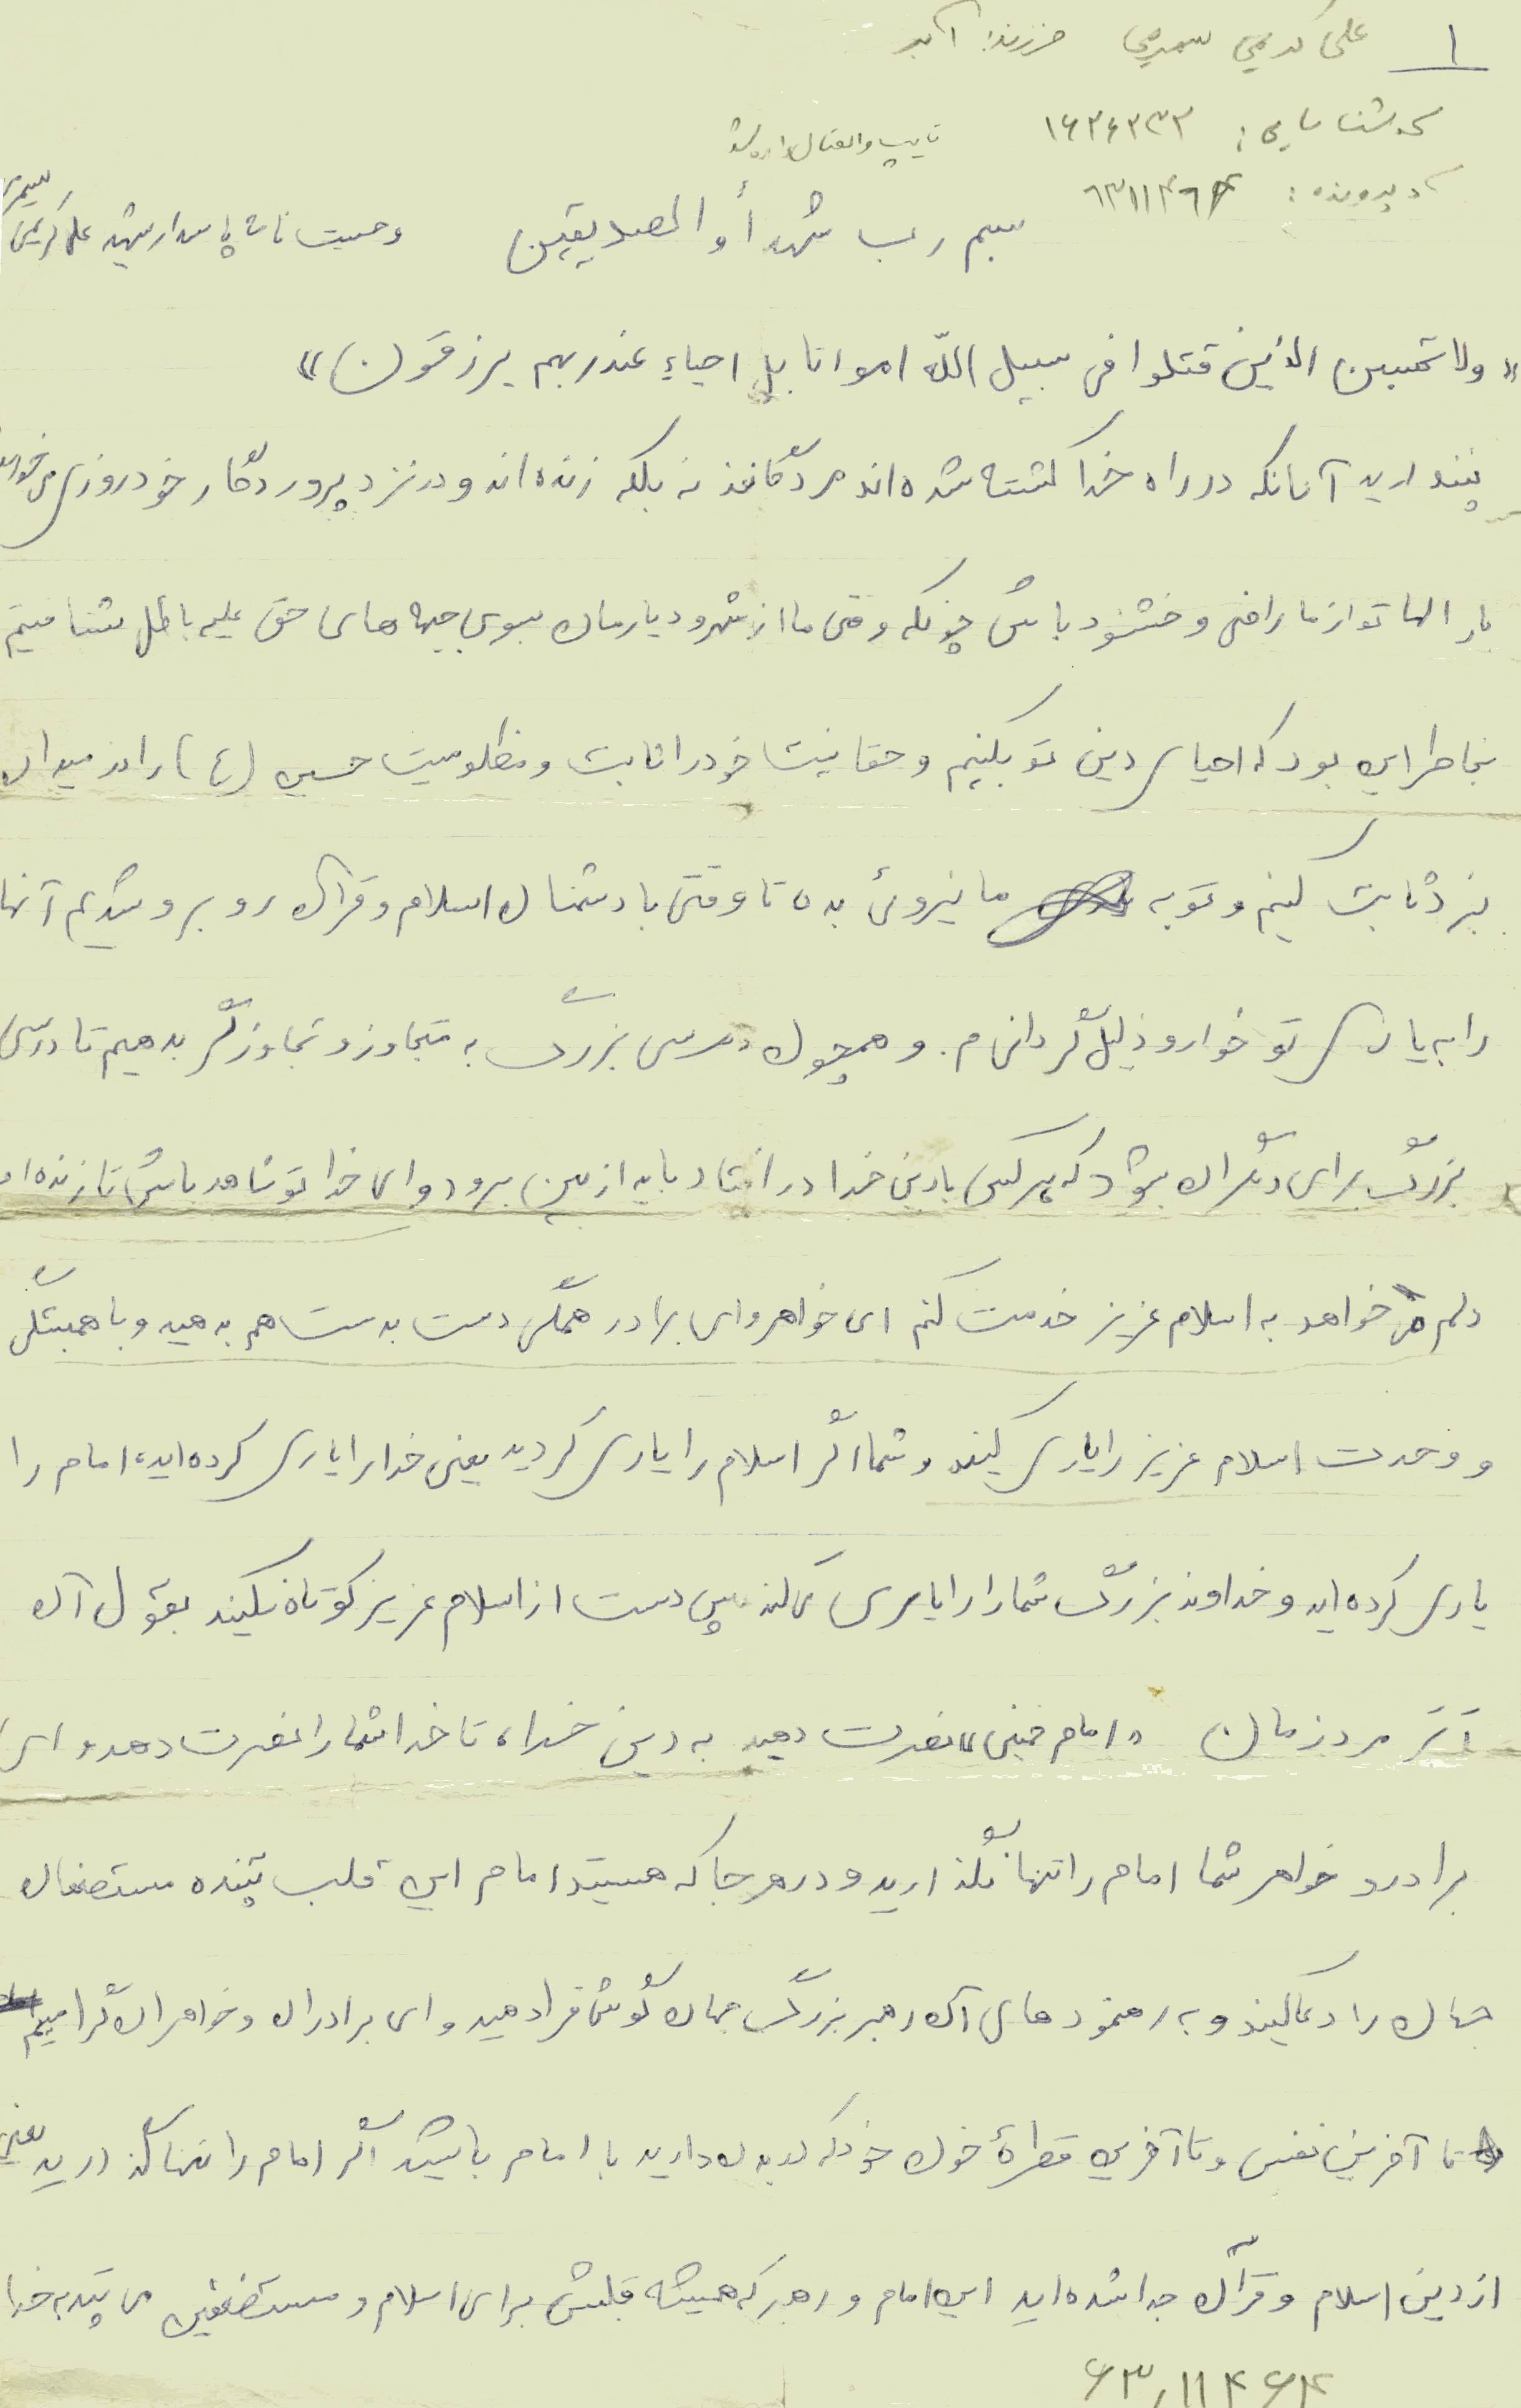 ۱ علی کریمی سمیرمی فرزند: اکبر
کد شناسایی: ۱۶۲۶۳۳۳ تایپ و اسکن شد
کد پرونده: ۶۳۱۱۴۶۴
بسم رب شهدا و الصدیقین وصیت نامه پاسدار شهید علی کریمی سمیرمی
«ولا تحسبن الذین قتلوا فی سبیل اللّه امواتا بل احیاء عند ربهم یرزقون»
پندارید آنانکه در راه خدا کشته شده اند مردگانند نه بلکه زنده اند و در نزد پروردگار خود روزی می خورند
بار الها تو از ما راضی و خشنود باش چونکه وقتی ما از شهر و دیارمان بسوی جبهه های حق علیه باطل شتافتیم
بخاطر این بود که احیای دین تو بکنیم و حقانیت خود را ثابت و مظلومیت حسین (ع) را در میدان
نبرد ثابت کنیم و تو به ما نیروئی بده تا وقتی با دشمنان اسلام و قرآن روبرو شدیم آنها
را به یاری تو خوار و ذلیل گردانیم. و همچون درسی بزرگ به متجاوز و تجاوزگر بدهیم تا درسی
بزرگ برای دیگران بشود که هر کس با دین خدا در افتاد باید از بین برود و ای خدا تو شاهد باش تا زنده ام
دلم می خواهد به اسلام عزیز خدمت کنم ای خواهر و ای برادر همگی دست به دست هم بدهید و با همبستگی
و وحدت اسلام عزیز را یاری کنید و شما اگر اسلام را یاری کردید یعنی خدا را یاری کرده اید، امام را
یاری کرده اید و خداوند بزرگ شما را یاری می کند پس دست از اسلام عزیز کوتاه نکنید بقول آن
مرد زمان «امام خمینی» نصرت دهید به دین خدا، تا خدا شما را نصرت دهد و ای
برادر و خواهر شما امام را تنها نگذارید و در هر جا که هستید امام این قلب تپنده مستضعفان
جهان را دعا کنید و به رهنمودهای آن رهبر بزرگ جهان گوش فرا دهید و ای برادران و خواهران گرامیم
تا آخرین نفس و تا آخرین قطرهٔ خون خود که در بدن دارید با امام باشید اگر امام را تنها گذارید یعنی
از دین اسلام و قرآن جدا شده اید این امام و رهبر که همیشه قلبش برای اسلام و مستضعفین می تپد به خدا
۶۳,۱۱۴۶۴